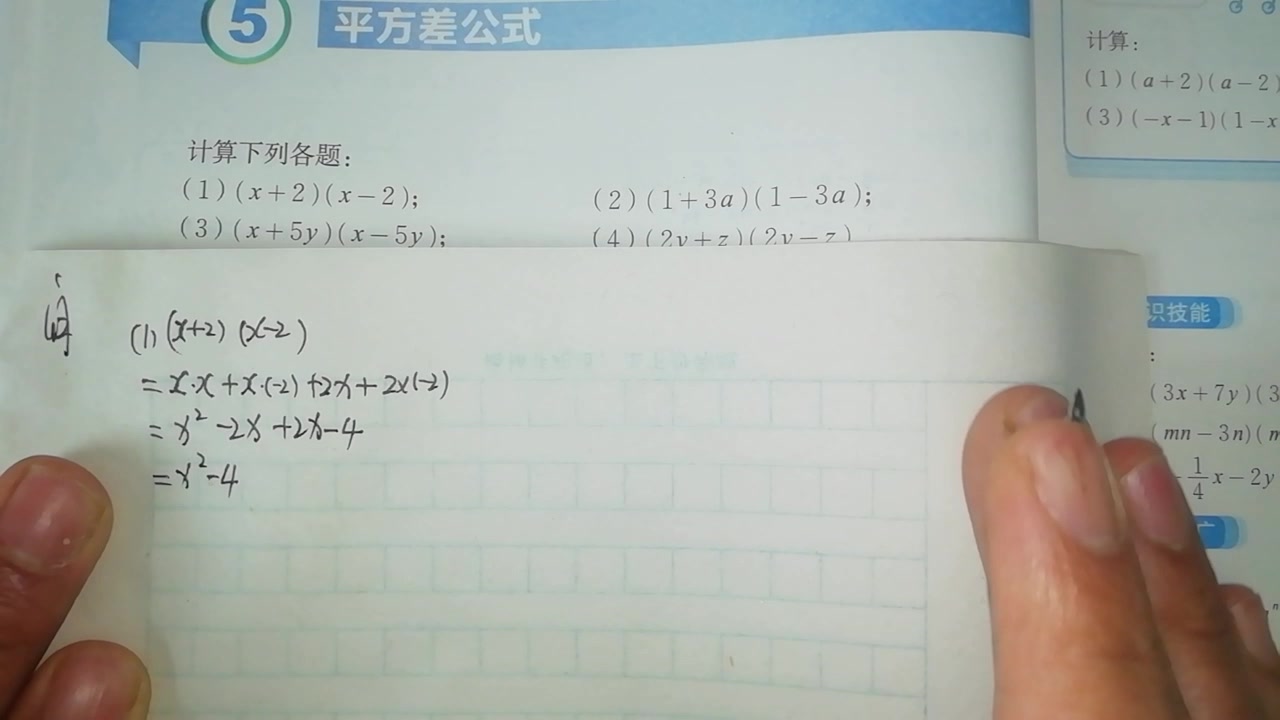 5 平方差公式
计算下列各题：
(1)(x+2)(x-2);
(2)(1+3a)(1-3a);
(3)(x+5y)(x-5y);
(4)(2y+z)(2y-z)
(1) (x+2) (x-2)
=x·x+x·(-2)+2x+2×(-2)
=x²-2x+2x-4
=x²-4
计算：
(1)(a+2)(a-2)
(3)(-x-1)(1-x
识技能
:
(3x+7y)(3
(mn-3n)(m
-1/4x-2y